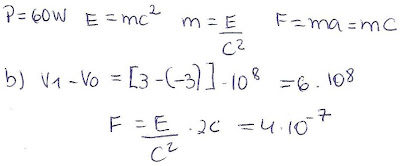 P=60W E=mc² m=E/c² F=ma=mc
b) V1-V0=[3-(-3)]·10⁸=6·10⁸
F=E/c²·2c=4·10⁻⁷